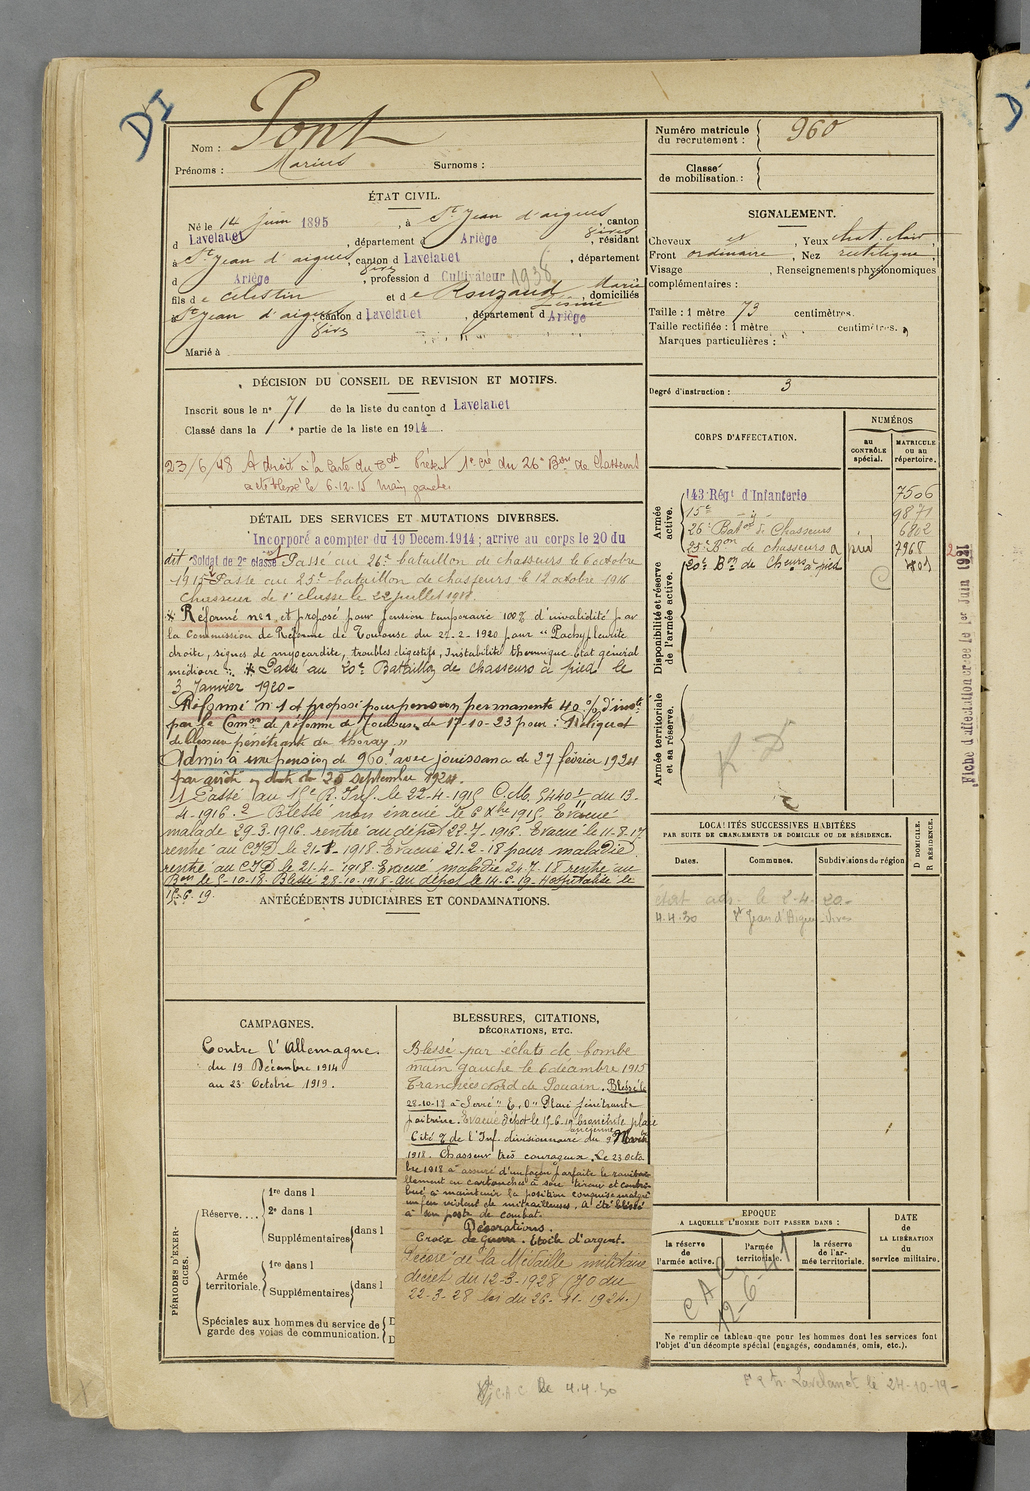 DI
Nom : Pont
Prénoms : Marius Surnoms :
Numéro matricule du recrutement : 960
Classe de mobilisation :
ÉTAT CIVIL.
Né le 14 juin 1895, à St Jean d'aigues vives, canton
d Lavelanet, département d Ariège, résidant
à St Jean d'aigues vives, canton d Lavelanet, département
d Ariège, profession d Cultivateur 1938
fils de Célestin et de Rouzaud Marie, domiciliés
à St Jean d'aigues vives, canton d Lavelanet, département d Ariège
Marié à
SIGNALEMENT.
Cheveux , Yeux chat. clair
Front ordinaire, Nez rectiligne
Visage , Renseignements physionomiques
complémentaires :
Taille : 1 mètre 73 centimètres.
Taille rectifiée : 1 mètre " centimètres.
Marques particulières : "
Degré d'instruction : 3
DÉCISION DU CONSEIL DE REVISION ET MOTIFS.
Inscrit sous le n° 71 de la liste du canton d Lavelanet
Classé dans la 1e partie de la liste en 1914.
23/6/48 A droit à la carte du Ctt Présent 1e Cie du 26e Bon de Chasseurs
acte blessé le 6.12.15 Main gauche.
DÉTAIL DES SERVICES ET MUTATIONS DIVERSES.
Incorporé a compter du 19 Decem. 1914; arrivé au corps le 20 du
dit Soldat de 2e classe Passé au 26e bataillon de chasseurs le 6 octobre
1915 Passé au 25e bataillon de chasseurs le 12 octobre 1916
Chasseur de 1e classe le 22 juillet 1918.
* Réformé n° 1 et proposé pour pension temporaire 100% d'invalidité par
la Commission de Réforme de Toulouse du 27-2-1920 pour "Pachypleurite
droite, signes de myocardite, troubles digestifs, Instabilité thermique Etat général
médiocre". * Passé au 20e Bataillon de chasseurs à pied le
3 Janvier 1920-
Réformé n° 1 et proposé pour pension permanente 40% d'invté
par la Comon de réforme de Toulouse du 17-10-23 pour : Reliquat
de blessure pénétrante du thorax."
Admis à une pension de 960f avec jouissance du 27 février 1924
par arrêté en date du 20 septembre 1924.
1 Passé au 15e R. Inf. le 22-4-1915 C.M. 5440 du 13-
4-1916. 2 Blessé non évacué le 6 Xbre 1915. Evacué
malade 29-3-1916. rentré au dépôt 22-7-1916. Evacué le 11-8-17
rentré au CID le 21-1-1918. Evacué 21-2-18 pour maladie
rentré au CID le 21-4-1918. Evacué maladie 24-7-18 rentré au
Bon le 5-10-18. Blessé 28-10-1918. Au dépôt le 14-6-19. Hospitalisé le
15-6-19.
CORPS D'AFFECTATION.
NUMÉROS
au CONTRÔLE spécial.
MATRICULE ou au répertoire.
Armée active.
143 Régt d'Infanterie 7506
15e - y - 9871
26e Baton de Chasseurs 6802
25e Bon de chasseurs à pied 7968
20e Bon de Cheurs à pied
Disponibilité et réserve de l'armée active.
Armée territoriale et sa réserve.
R D
Fiche d'affectation créée le 1er Juin 1921
LOCALITÉS SUCCESSIVES HABITÉES
PAR SUITE DE CHANGEMENTS DE DOMICILE OU DE RÉSIDENCE.
Dates. Communes. Subdivisions de région
D DOMICILE. R RÉSIDENCE.
le 2-4-20.
4.4.30 St Jean d'Aigues-Vives
ANTÉCÉDENTS JUDICIAIRES ET CONDAMNATIONS.
CAMPAGNES.
Contre l'Allemagne.
du 19 Décembre 1914
au 23 Octobre 1919.
BLESSURES, CITATIONS,
DÉCORATIONS, ETC.
Blessé par éclats de bombe
main gauche le 6 décembre 1915
Tranchées Nord de Souain. Blessé le
28-10-18 à Serre "E.O" Plaie pénétrante
poitrine. Evacué dépôt le 15-6-19
Cité O/ de l'Inf. divisionnaire du 9 Novbre
1918. Chasseur très courageux. Le 23 octo
bre 1918 a assuré d'une façon parfaite le ravitail
llement en cartouches à son tireur et contri-
bué à maintenir la position conquise malgré
un feu violent de mitrailleuses. A été blessé
à son poste de combat.
Décorations.
Croix de Guerre. Etoile d'argent.
Décoré de la Médaille militaire
décret du 12-3-1928 (JO du
22-3-28
PÉRIODES D'EXERCICES.
Réserve....
1re dans l
2e dans l
Supplémentaires dans l
Armée territoriale.
1re dans l
Supplémentaires dans l
Spéciales aux hommes du service de garde des voies de communication. D D
EPOQUE
A LAQUELLE L'HOMME DOIT PASSER DANS :
la réserve de l'armée active.
l'armée territoriale.
la réserve de l'armée territoriale.
DATE de LA LIBÉRATION du service militaire.
CAC
12-6-41
Ne remplir ce tableau que pour les hommes dont les services font
l'objet d'un décompte spécial (engagés, condamnés, omis, etc.).
C.A.C de 4.4.30
Lavelanet le 24-10-19-